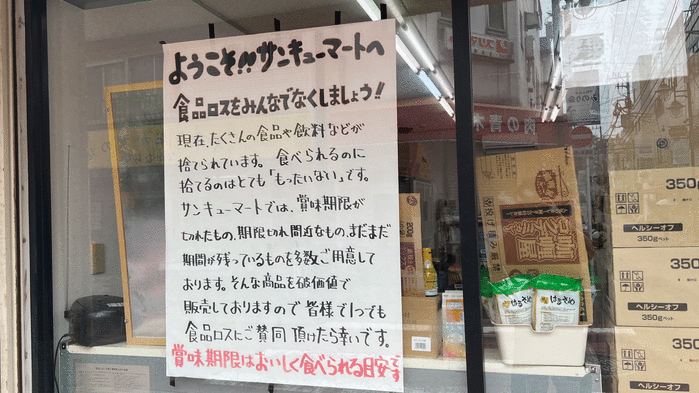 ようこそ!!サンキューマートへ
食品ロスをみんなでなくしましょう!!
現在、たくさんの食品や飲料などが
捨てられています。食べられるのに
捨てるのはとても「もったいない」です。
サンキューマートでは、賞味期限が
切れたもの、期限切れ間近なもの、まだまだ
期間が残っているものを多数ご用意して
おります。そんな商品を破価値で
販売しておりますので皆様で1つでも
食品ロスにご賛同頂けたら幸いです。
賞味期限はおいしく食べられる目安です
肉の青木
はるさめ
はるさめ
350
ヘルシーオフ
350gペット
350
ヘルシーオフ
350gペット
350
ヘルシーオフ
350gペット
350
ヘルシーオフ